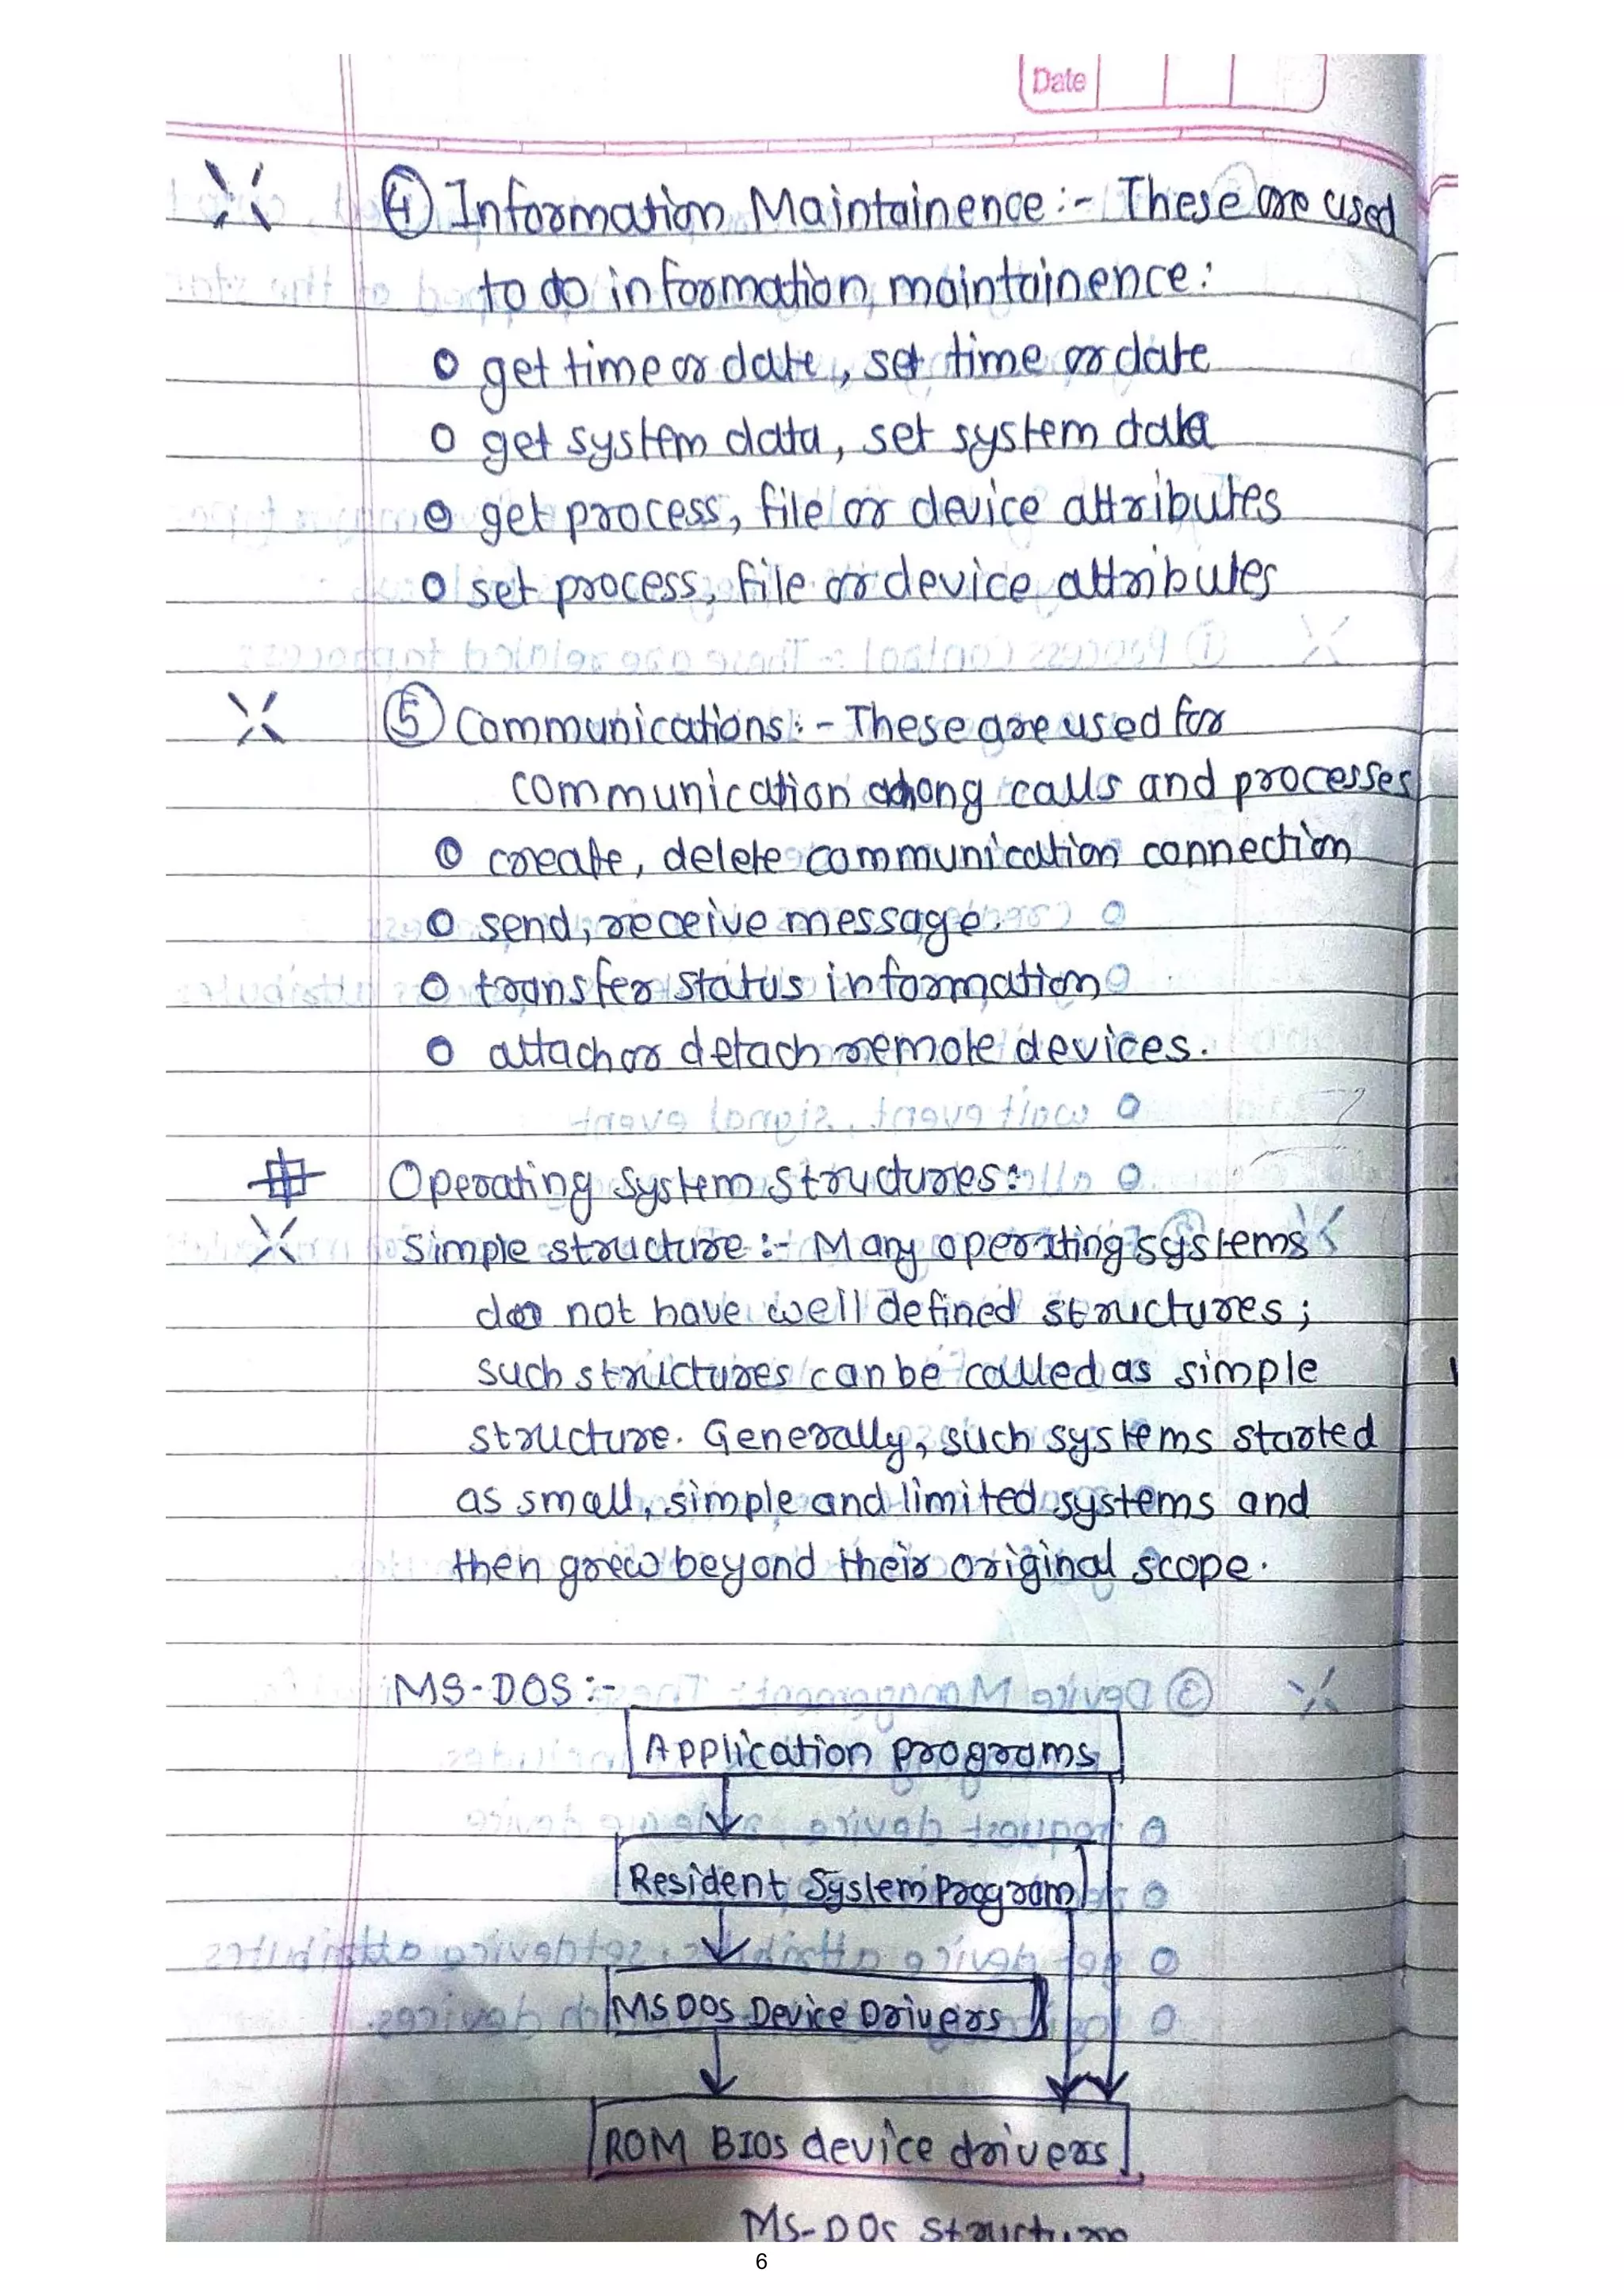 Date
④ Information Maintainence :- These are used
to do information maintainence:
o get time or date, set time or date
o get system data, set system data
o get process, file or device attributes
o set process, file or device attributes
⑤ Communications :- These are used for
communication among calls and processes
o create, delete communication connection
o send, receive message.
o transfer status information
o attach or detach remote devices.
# Operating System Structures:
Simple structure :- Many operating systems
do not have well defined structures;
such structures can be called as simple
structure. Generally, such systems started
as small, simple and limited systems and
then grew beyond their original scope.
MS-DOS :-
Application programs
Resident System Program
MSDOS Device Drivers
ROM BIOS device drivers
MS-DOS Structure
6